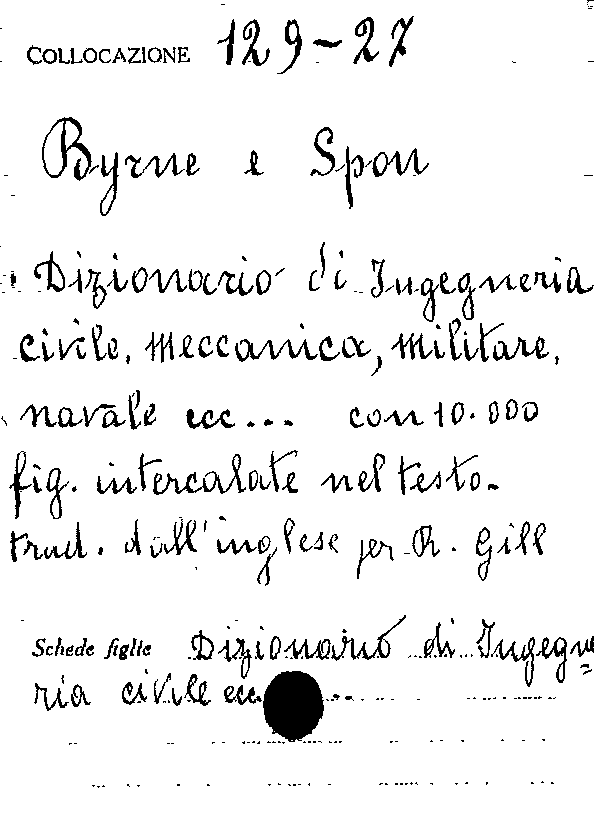 COLLOCAZIONE 129-27
Byrne e Spon
Dizionario di Ingegneria
civile, meccanica, militare,
navale ecc... con 10.000
fig. intercalate nel testo-
trad. dall'inglese per R. Gill
Schede figlie Dizionario di Ingegne=
ria civile ecc...